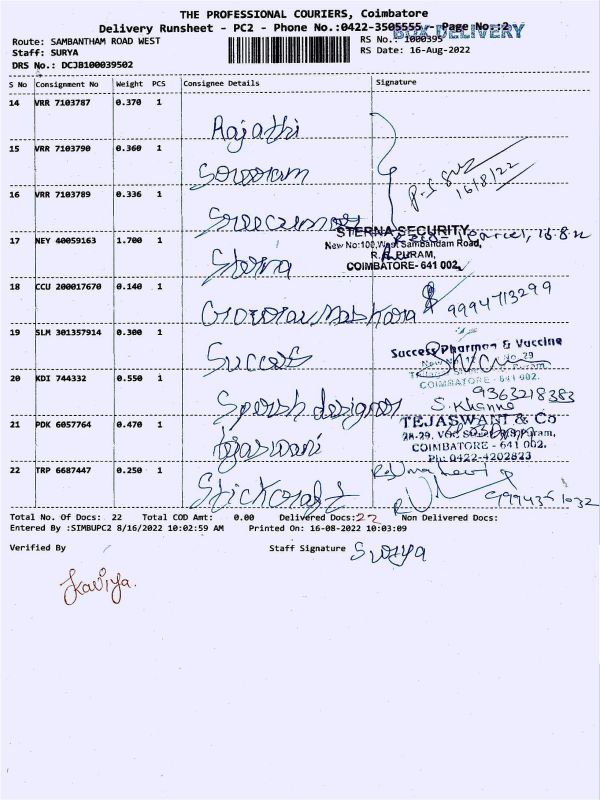 THE PROFESSIONAL COURIERS, Coimbatore
Delivery Runsheet - PC2 - Phone No.:0422-3505555 - Page No.:2
BOX DELIVERY
Route: SAMBANTHAM ROAD WEST
RS No.: 1000395
Staff: SURYA
RS Date: 16-Aug-2022
DRS No.: DCJB100039502
S No Consignment No Weight PCS Consignee Details Signature
14 VRR 7103787 0.370 1
Rajathi
15 VRR 7103790 0.360 1
16/8/22
16 VRR 7103789 0.336 1
STERNA SECURITY
17 NEY 40059163 1.700 1
New No:100, West Sambandam Road,
R.S. PURAM,
Sterna
COIMBATORE- 641 002.
18 CCU 200017670 0.140 1
9994713299
19 SLM 301357914 0.300 1
Success
Success Pharma & Vaccine
COIMBATORE - 641 002.
20 KDI 744332 0.550 1
9363218383
designer
S. Khanna
21 PDK 6057764 0.470 1
TEJASWANI & Co
Tejaswani
COIMBATORE - 641 002.
Ph: 0422-4202823
22 TRP 6687447 0.250 1
Stickcraft
9994351032
Total No. Of Docs: 22 Total COD Amt: 0.00 Delivered Docs: 22 Non Delivered Docs:
Entered By :SIMBUPC2 8/16/2022 10:02:59 AM Printed On: 16-08-2022 10:03:09
Verified By Staff Signature Surya
Kaviya.